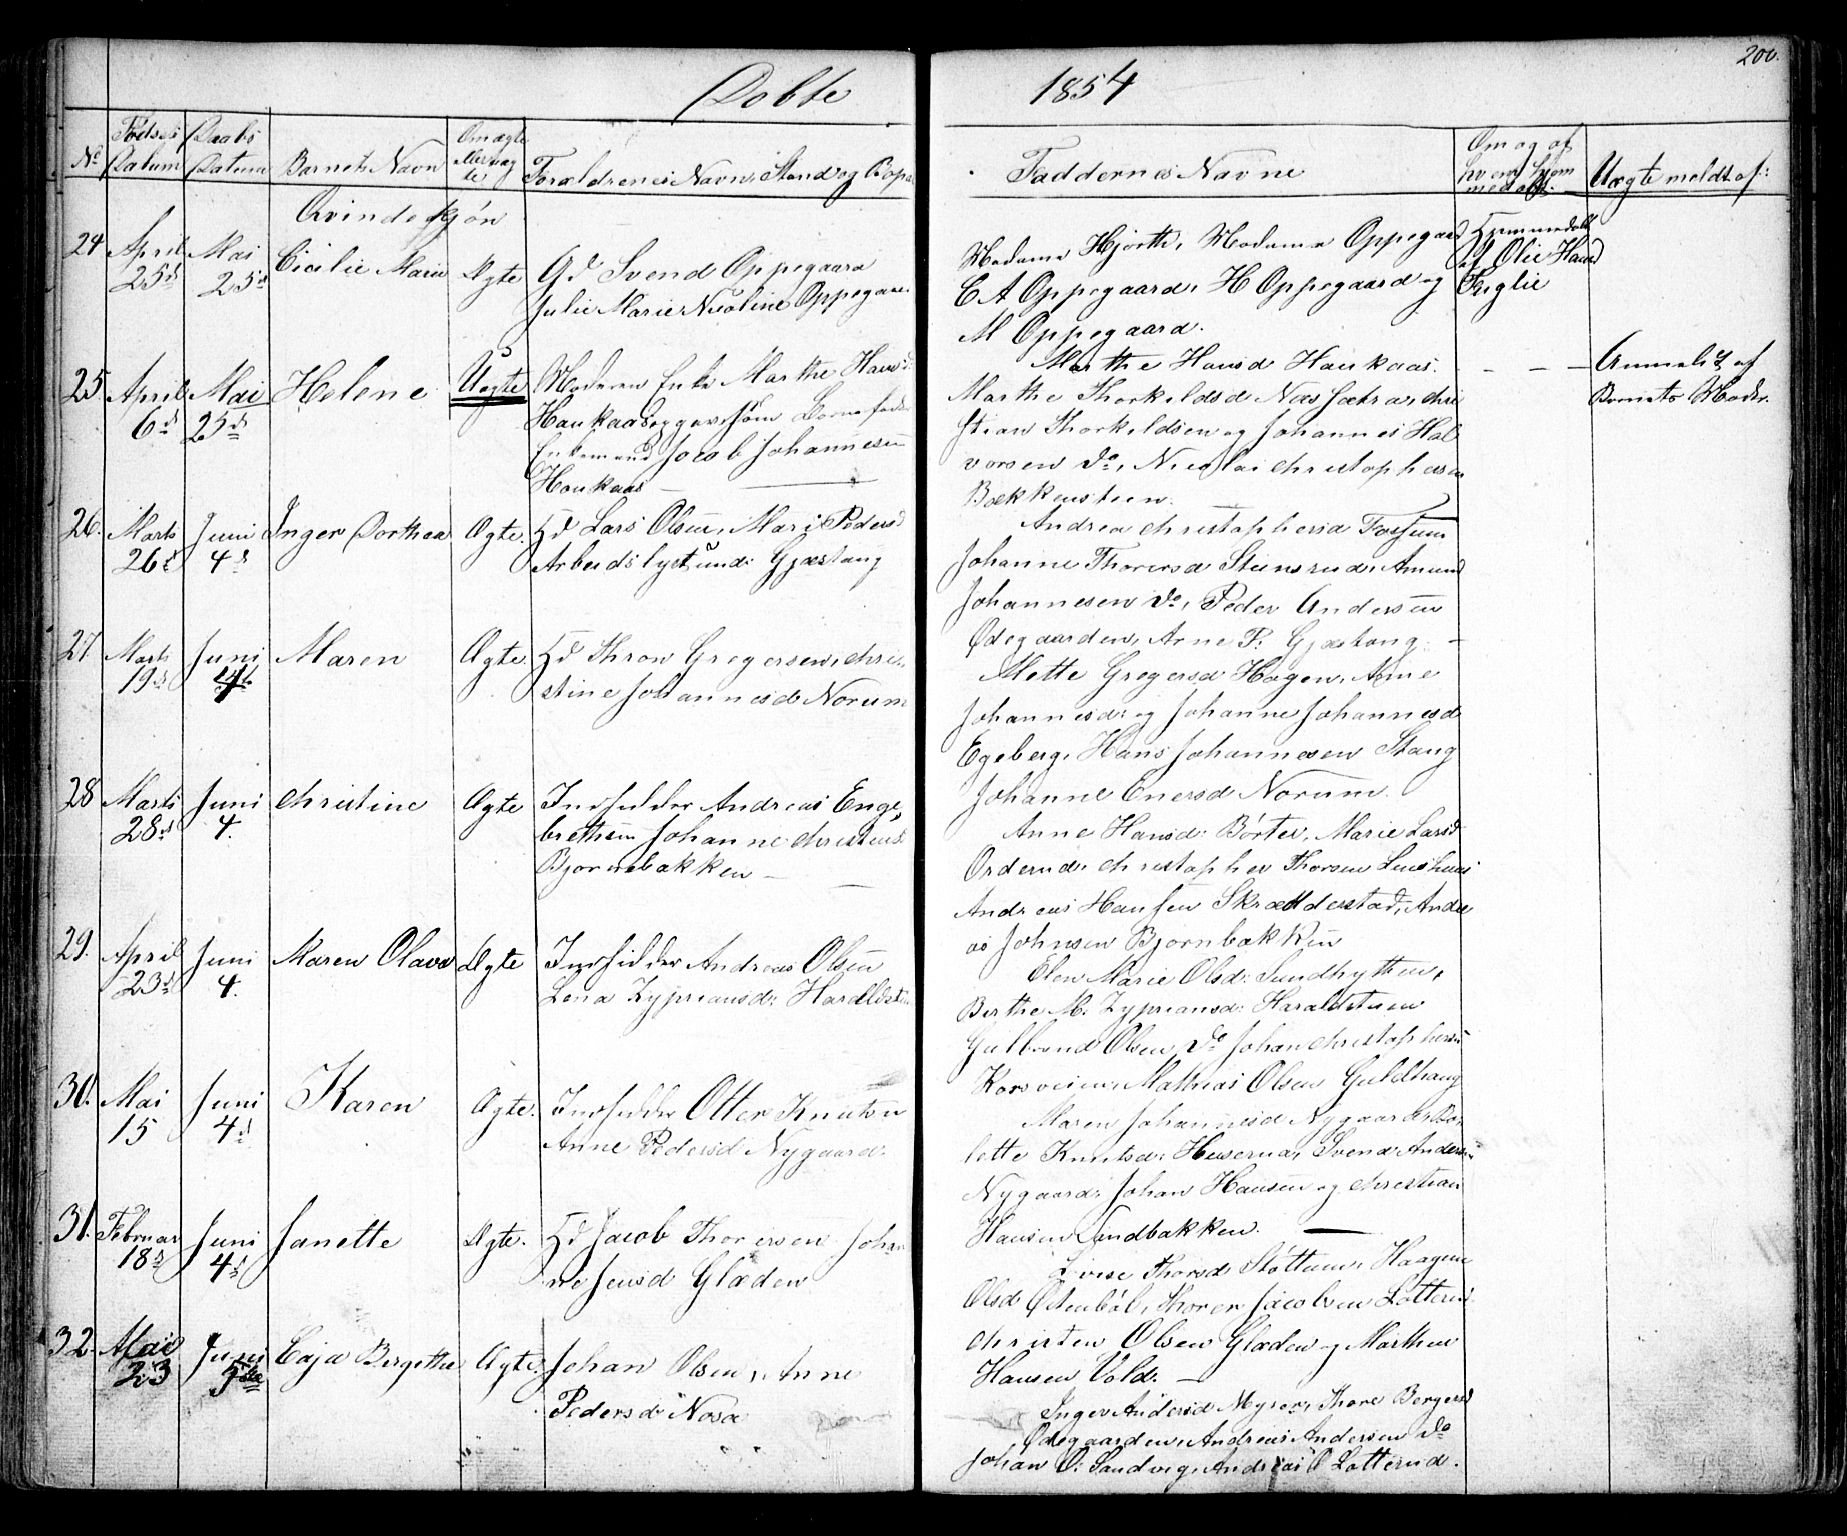 Døbte 1854
200.
No
Fødsels Datum
Daabs Datum
Barnets Navn
Om ægte eller uægte
Forældrenes Navn, Stand og Bopæ
Faddernes Navne
Om og af hvem hjemmedøbt.
Uægte meldt af:
Qvindekjøn
24 April 25d Mai 25d Cicilie Marie Ægte Gd Svend Oppegaard
Julie Marie Nicoline Oppegaar
Madame Hjorth, Madame Oppegaard
C A Oppegaard, H Oppegaard og
M Oppegaard.
Hjemmedøbt
af Olie Hansd
Fuglie
25. April 6d Mai 25d Helene Uægte Moderen Enke Marthe Hansd
Haukaas opgav som Barnefader
Enkemand Jacob Johannesen
Haukaas
Marthe Hansd Haukaas.
Marthe Thorkildsd Næssætra, Chri
stian Thorkildsen og Johannes Hal
vorsen do, Nicolai Christophersen
Bækkensteen.
Anmeldt af
Barnets Moder.
26. Marts 26d Juni 4d Inger Dorthea Ægte. Hd Lars Olsen, Mari Pedersd
Arbeidslyst under Gjæstang
Andrea Christophersd Forsum
Johanne Thorersd Steensrud, Amund
Johannesen do, Peder Andersen
Ødegaarden, Arne P. Gjæstang.
27. Marts 19d Juni 4 Maren Ægte. Hd Thron Gregersen, Chri
stine Johannesd Norum
Mette Gregersd Hagen, Anne
Johannesd og Johanne Johannesd
Egeberg, Hans Johannesen Stang
Johanne Enersd Norum.
28 Marts 28d Juni 4. Christine Ægte Indsidder Andreas Enge
brethsen Johanne Christensd
Bjørnebakken
Anne Hansd: Børter, Marie Larsd
Orderud, Christopher Thorsen
Andreas Hansen Skrædderstad, Andre
as Johnsen Bjørnbakken
29. April 23d Juni 4. Maren Olava Ægte Indsidder Andreas Olsen
Lena Zypriansd: Haraldst
Elen Marie Olsd: Sundbytten,
Berthe M. Zypriansd: Haraldsteen
Gulbrand Olsen do Johan Christophersen
Korsveien, Mathias Olsen Guldhaug
30. Mai 15 Juni 4d Karen Ægte. Indsidder Otter Knutsen
Anne Pedersd Nygaard.
Maren Johannesd Nygaard, Bo
lette Knutsd: Huserna, Svend Anders
Nygaard, Johan Hansen og Christian
Hansen Sindbakken.
31. Februar 18d Juni 4d Janette Ægte. Hd Jacob Thorersen Johan
ne Jensd Glæden
Lovise Thorsd Støttum, Haagine
Olsd Østenbøl, Thorer Jacobsen Lotterud
Christen Olsen Glæden og Marthin
Hansen Vold.
32. Mai 23 Juni 5te Caja Bergitthe Ægte. Johan Olsen, Anne
Pedersd: Nosa
Inger Andersd Myrer, Thore Bergersd
Ødegaarden, Andreas Andersen do
Johan O: Sandvig, Andreas O Lotterud.